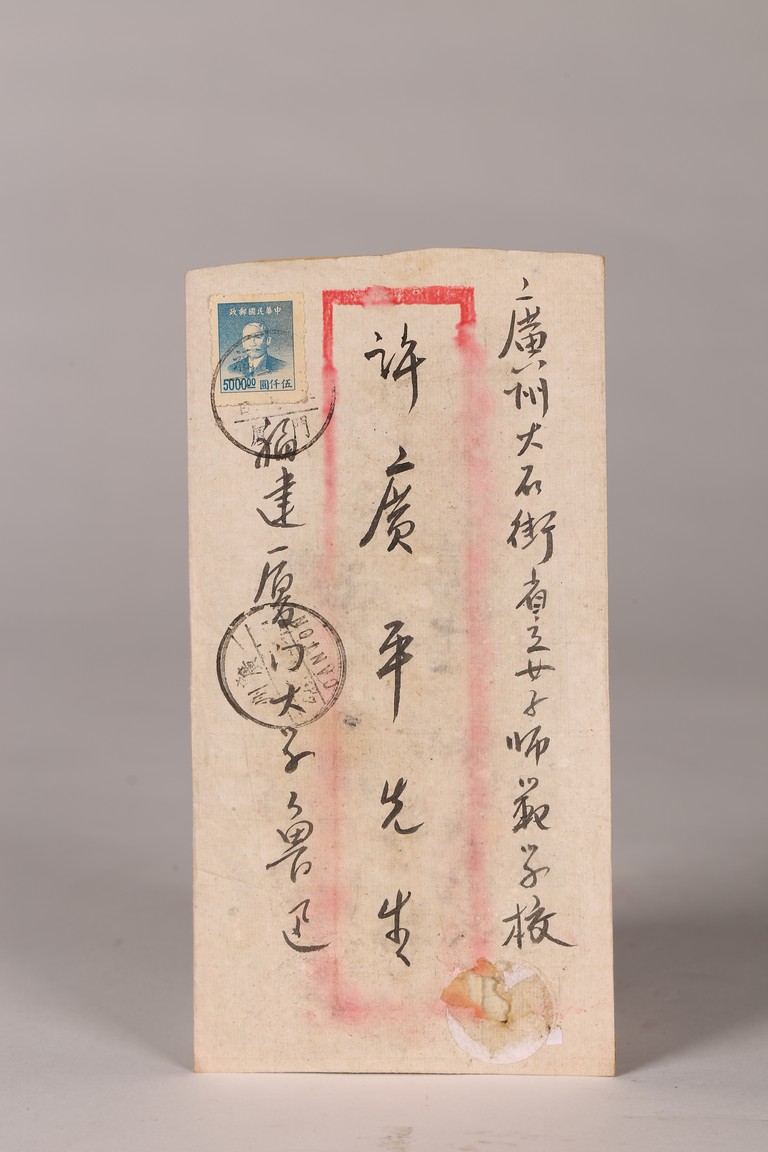 廣州大石街省立女子师範学校
許廣平先生
福建厦门大学魯迅
中華民國郵政
5000.00 伍仟圓
CANTON
廣州